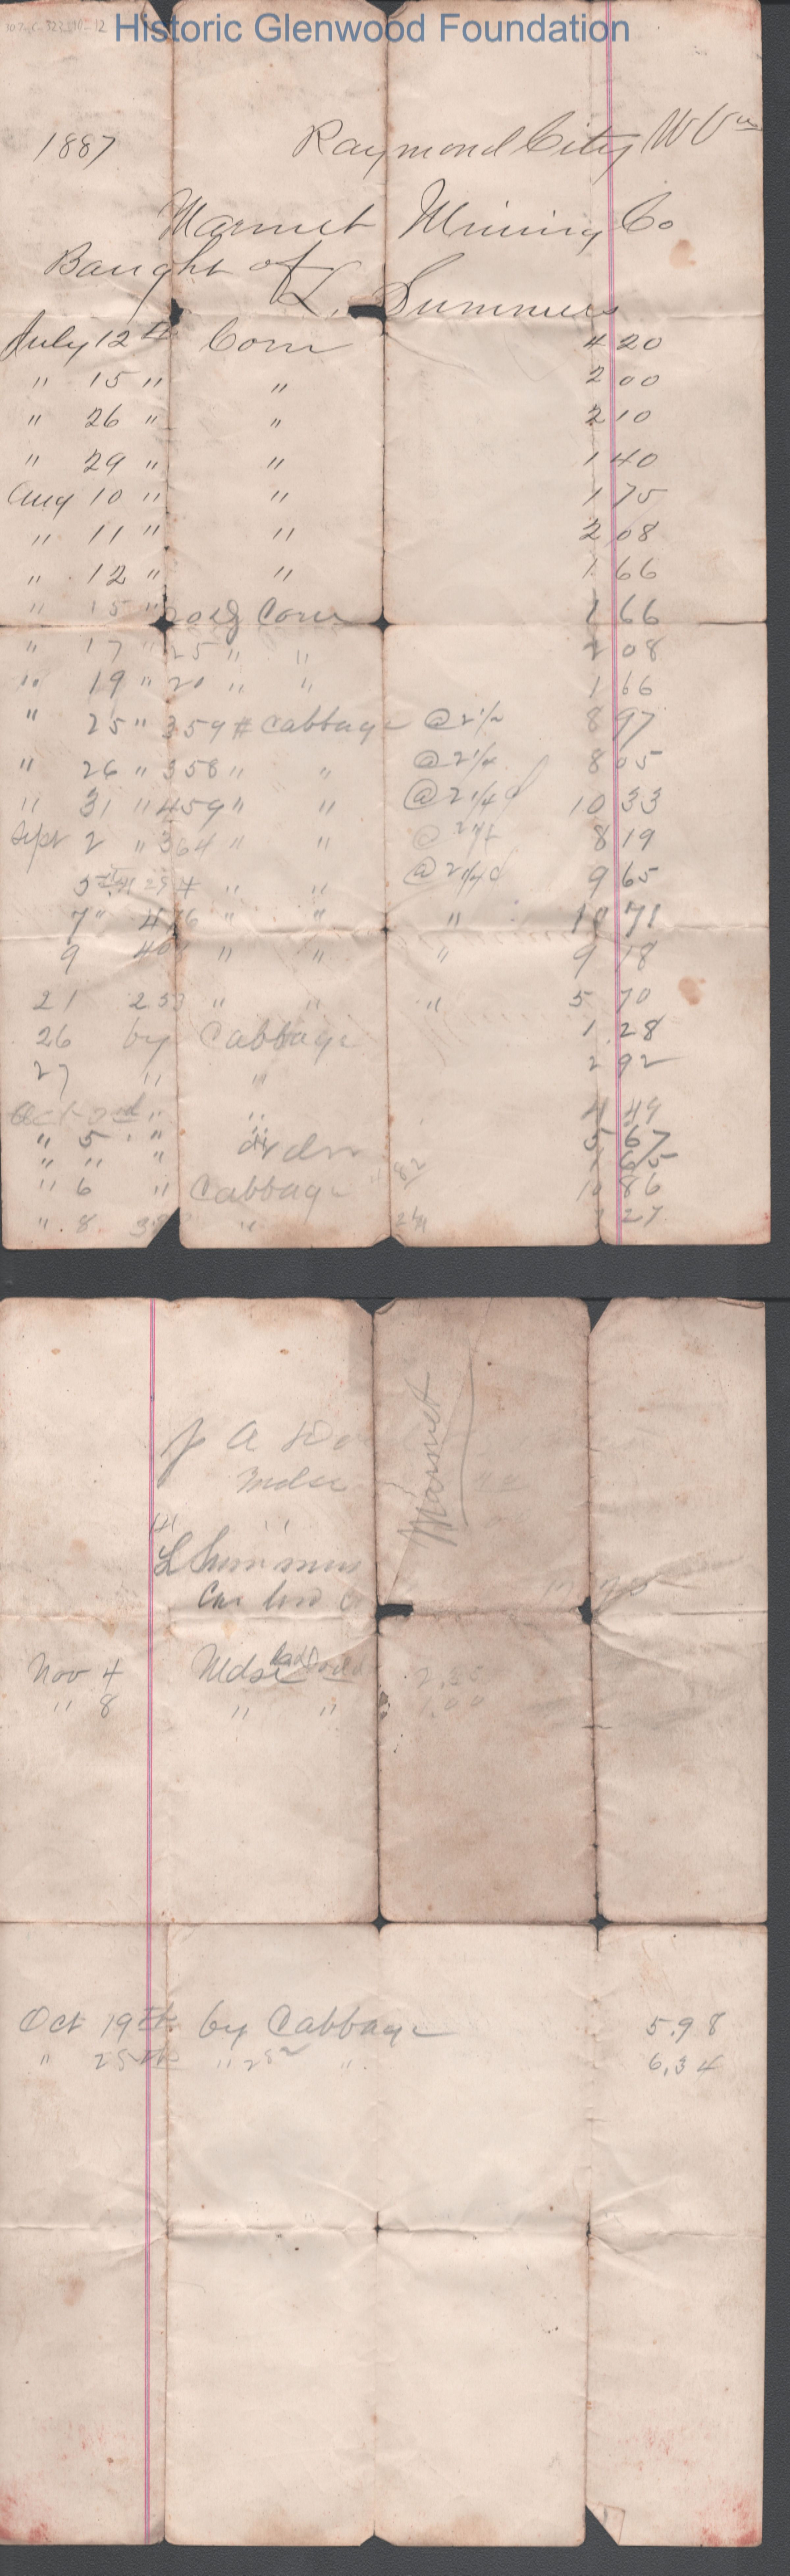 Historic Glenwood Foundation
1887 Raymond City W Va
Marmet Mining Co
Baught of
L. Summers
July 12th Corn 4 20
" 15 " " 2 00
" 26 " " 2 10
" 29 " " 1 40
Aug 10 " " 1 75
" 11 " " 2 08
" 12 " " 1 66
" 15 " Corn 1 66
" 17 " 25 " " 2 08
" 19 " 20 " " 1 66
" 25 " 359 # Cabbage @ 2 1/2 8 97
" 26 " 358 " " @ 2 1/4 8 05
" 31 " 459 " " @ 2 1/4 10 33
Sept 2 " 364 " " @ 8 19
5th " " @ 2 1/4 9 65
7 " 476 " " " 10 71
9 " " " 9 18
21 253 " " " 5 70
26 by Cabbage 1 28
27 " " 2 92
Oct 2nd " " 4 49
" 5 " " 5 67
" " " 1 65
" 6 " Cabbage 10 86
" 8 " 27
J A
Mdse
Marmet
L Summers
Nov 4 Mdse 2.50
" 8 " " 1.00
Oct 19th by Cabbage 5.98
" 25th " 282 " 6.34